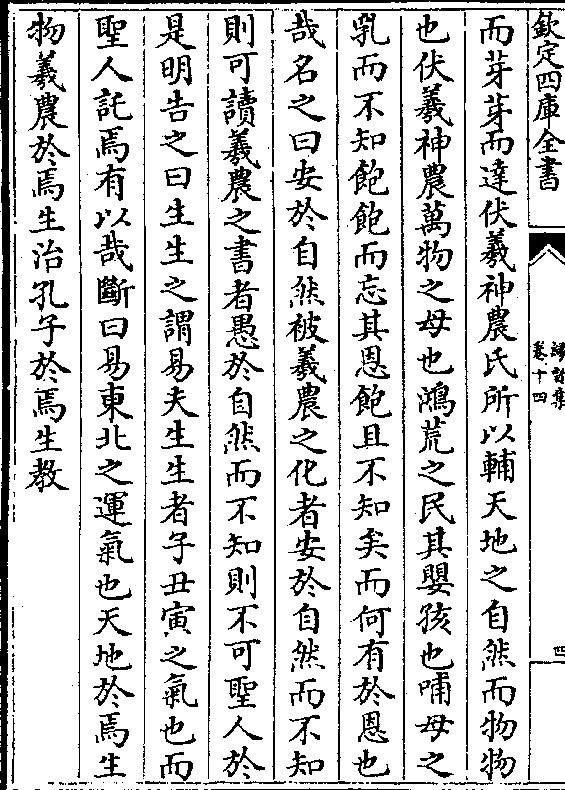 欽定四庫全書
卷十四
四
而芽芽而達伏羲神農氏所以輔天地之自然而物物
也伏羲神農萬物之母也鴻荒之民其嬰孩也哺母之
乳而不知飽飽而忘其恩飽且不知矣而何有於恩也
哉名之曰安於自然被羲農之化者安於自然而不知
則可讀羲農之書者愚於自然而不知則不可聖人於
是明告之曰生生之謂易夫生生者子丑寅之氣也而
聖人託焉有以哉斷曰易東北之運氣也天地於焉生
物羲農於焉生治孔子於焉生教